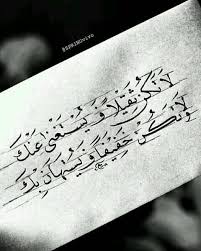 لَا تَكُنْ ثَقِيلًا فَيُسْتَغْنَى عَنْكَ
وَلَا تَكُنْ خَفِيفًا فَيُسْتَهَانَ بِكَ